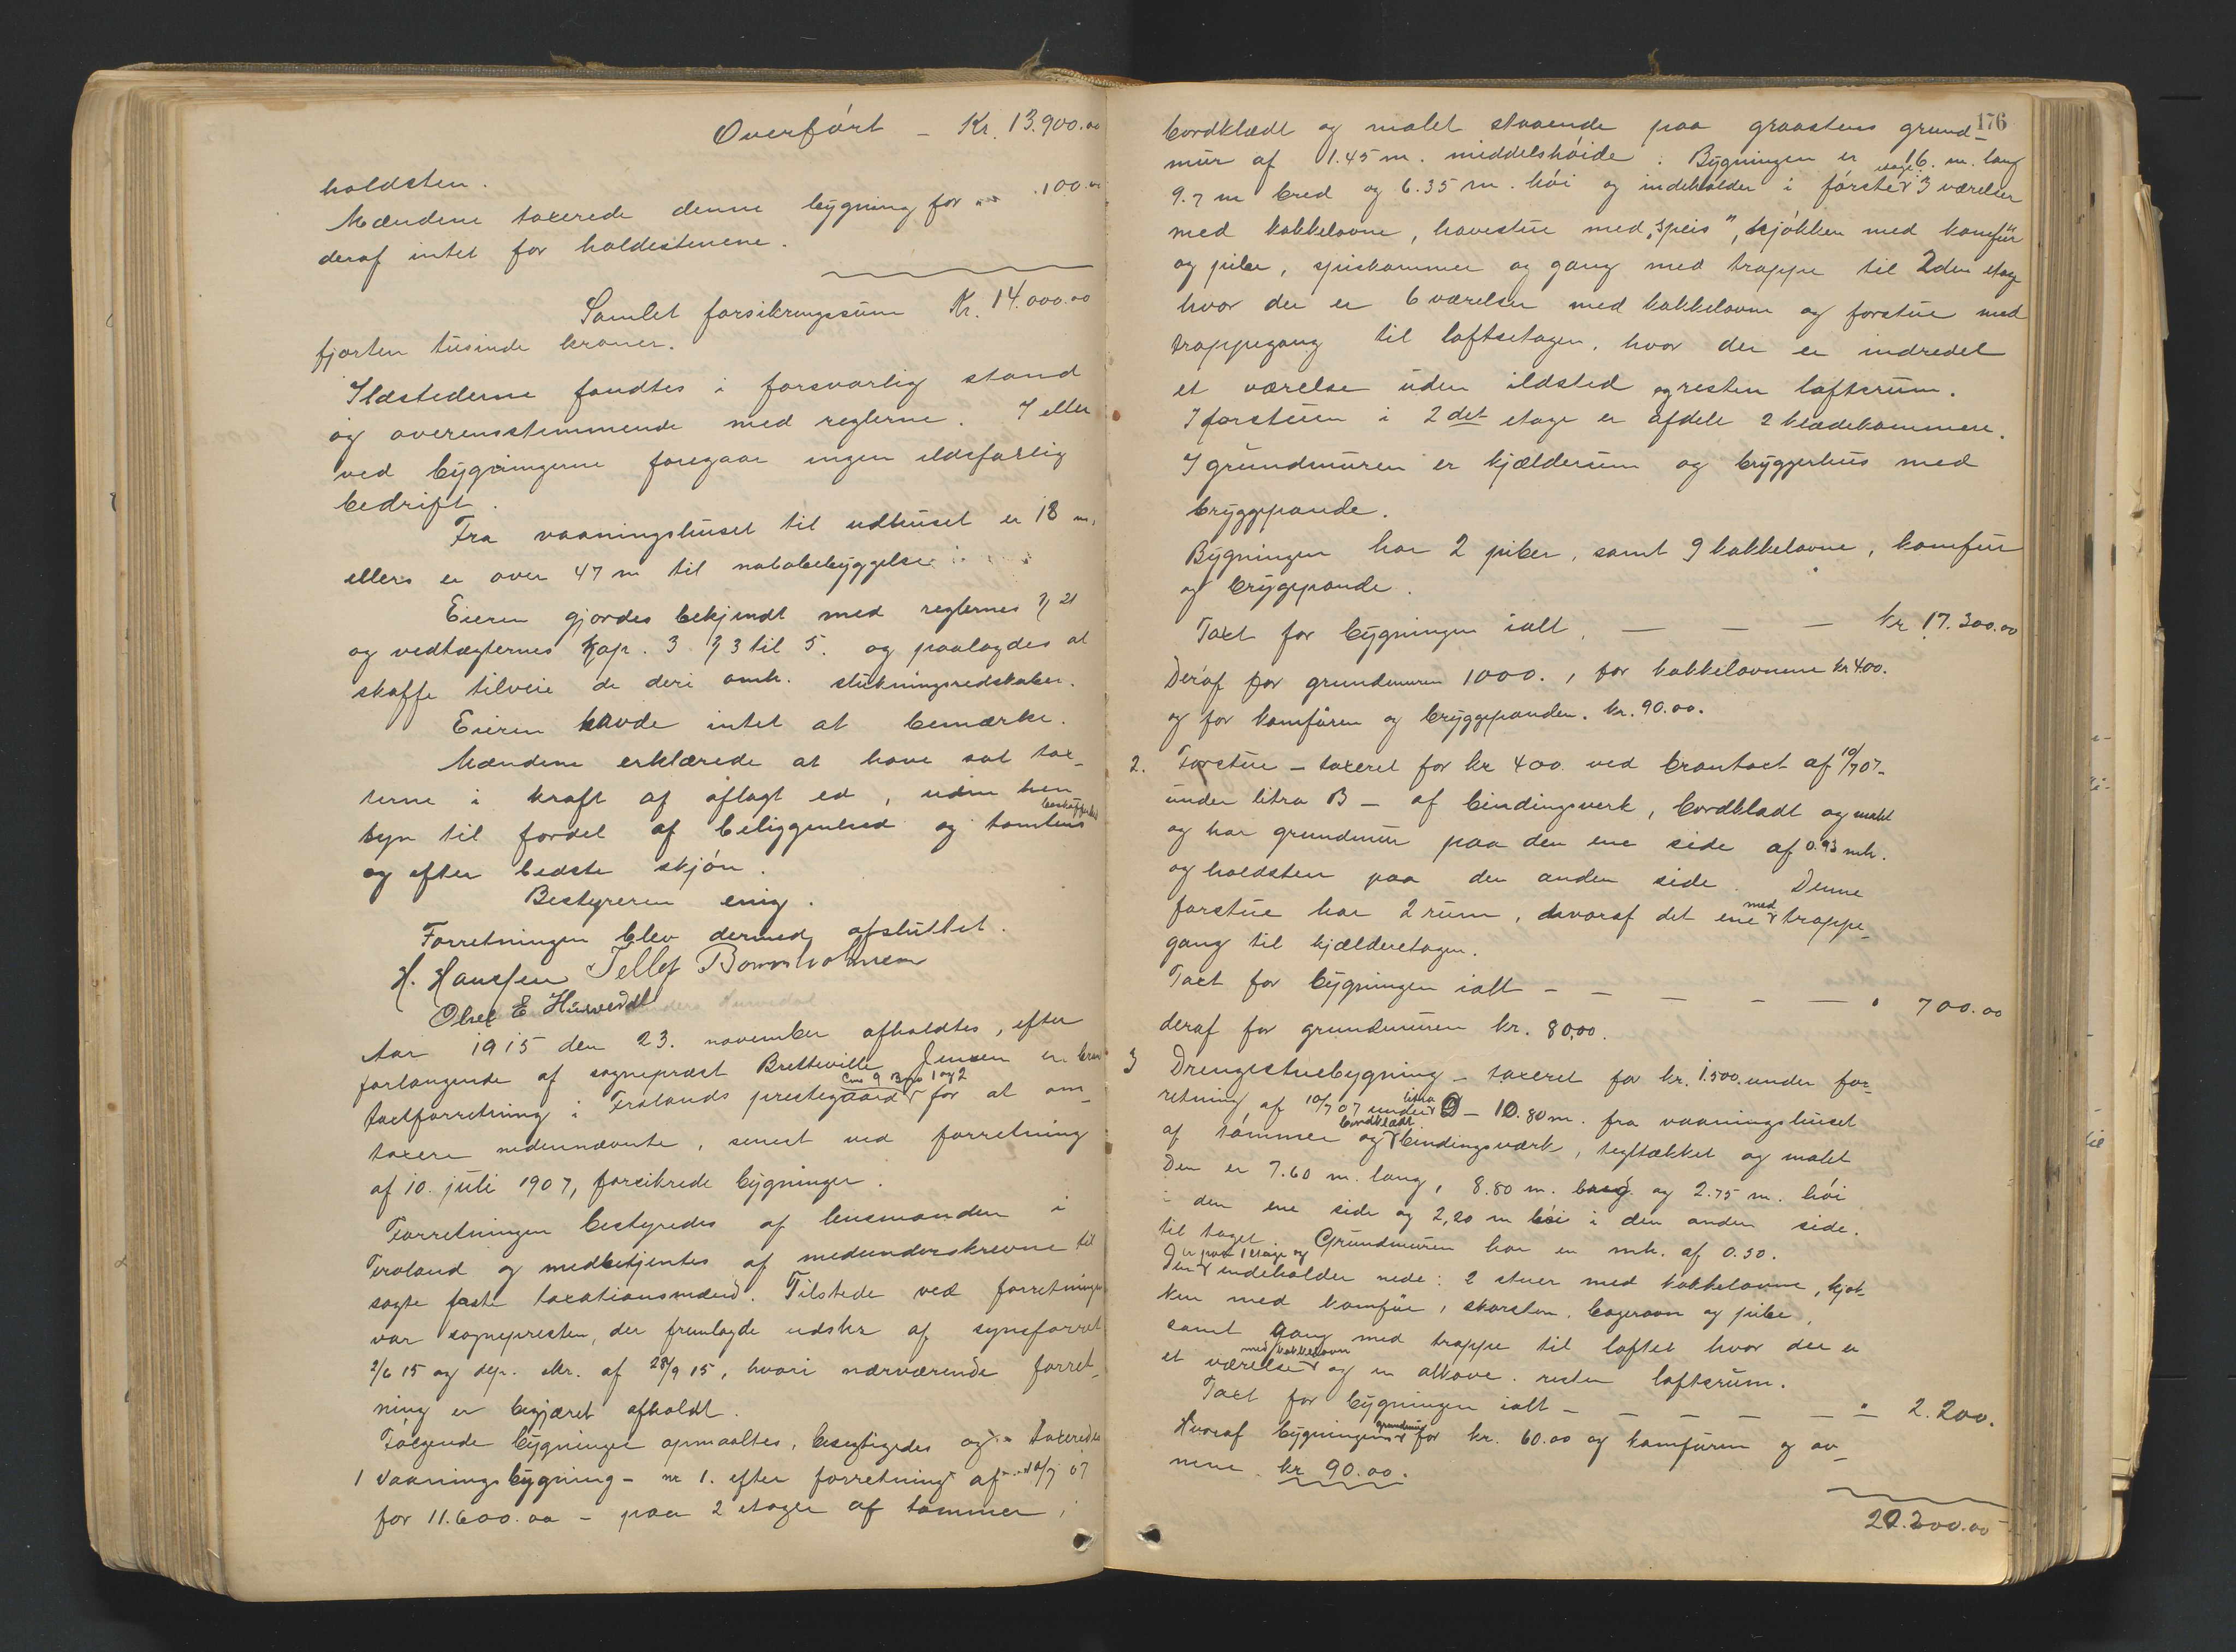 Overført – Kr. 13.900.00
holdsten.
Mændene taxerede denne bygning for „ 100.00
deraf intet for holdestenene.
Samlet forsikringssum Kr. 14.000.00
fjorten tusinde kroner.
Ildstederne fandtes i forsvarlig stand
og overensstemmende med reglerne. I eller
ved bygningerne foregaar ingen ildsfarlig
bedrift.
Fra vaaningshuset til udhuset er 18 m.
ellers er over 47 m til nabobebyggelse.
Eieren gjordes bekjendt med reglernes § 21
og vedtægternes Kap. 3 § 3 til 5. og paalagdes at
skaffe tilveie de deri omh. slukningsredskaber.
Eieren havde intet at bemærke.
Mændene erklærede at have sat tax-
terne i kraft af aflagt ed, uden hen
syn til fordel af beliggenhed og tomtens beskaffenhed
og efter bedste skjøn.
Bestyreren enig.
Forretningen blev dermed afsluttet.
H. Hanssen Tellef Bornholmsen
Olsen E Hurvedal
Aar 1915 den 23. november afholdtes, efter
forlangende af sogneprest Bretteville Jensen en bran
taxtforretning i Frolands prestegaard Gno 9 Bno 1 og 2 for at om-
taxere nedennævnte, senest ved forretning
af 10. juli 1907, forsikrede bygninger.
Forretningen bestyredes af lensmanden i
Froland og medbetjentes af medunderskrevne til
sagte faste taxationsmænd. Tilstede ved forretningen
var sognepresten, der fremlagde udskr af synsforret
2/6 15 og dep. skr. af 28/9 15, hvori nærværende forret-
ning er begjæret afholdt.
Følgende bygninger opmaaltes, besigtigedes og taxeredes
1 Vaaningsbygning – nr 1. efter forretning af 10/7 07
for 11.600.00 – paa 2 etager af tømmer,
176
bordklædt og malet staaende paa graastens grund-
mur af 1.45 m. middelshøide. Bygningen er 16. m. lang
9.7 m bred og 6.35 m. høi og indeholder i første etage 3 værelser
med kakkelovne, havestue med „speis", kjøkken med komfur
og pibe, spiskammer og gang med trappe til 2den etage
hvor der er 6 værelser med kakkelovne og forstue med
trappegang til loftsetagen. hvor der er indredet
et værelse uden ildsted og resten loftsrum.
I forstuen i 2det etage er afdelt 2 klædekammere.
I grundmuren er kjælderrum og bryggerhus med
bryggepande.
Bygningen har 2 piber, samt 9 kakkelovne, komfur
og bryggepande.
Taxt for bygningen ialt. — — — kr 17.300.00
Deraf for grundmuren 1000., for kakkelovnene kr 400.
og for komfuren og bryggepanden. kr. 90.00.
2. Forstue – taxeret for kr 400. ved brantaxt af 10/7 07-
under litra B – af bindingsverk, bordklædt og malet
og har grundmur paa den ene side af 0.93 mh.
og holdsten paa den anden side. Denne
forstue har 2 rum, hvoraf det ene med trappe-
gang til kjælderetagen.
Taxt for bygningen ialt – – – – – „ 700.00
deraf for grundmuren kr. 80,00.
3 Drengestuebygning – taxeret for kr. 1.500. under for-
retning af 10/7 07 under litra D – 10.80 m. fra vaaningshuset
af tømmer og bordklædt bindingsværk, tegltækket og malet
Den er 7.60 m. lang, 8.80 m. bred og 2.75 m. høi
i den ene side og 2,20 m høi i den anden side.
til taget. Grundmuren har en mh. af 0.50.
Den er paa 1 etage og indeholder nede: 2 stuer med kakkelovne, kjøk-
ken med komfur, skorsten, bagerovn og pibe,
samt gang med trappe til loftet hvor der er
et værelse med kakkelovn og en alkove. resten loftsrum.
Taxt for bygningen ialt – – – – – „ 2.200.
Hvoraf bygningens grundmur for kr. 60.00 og komfuren og ov-
nene kr 90.00.
20.200.00